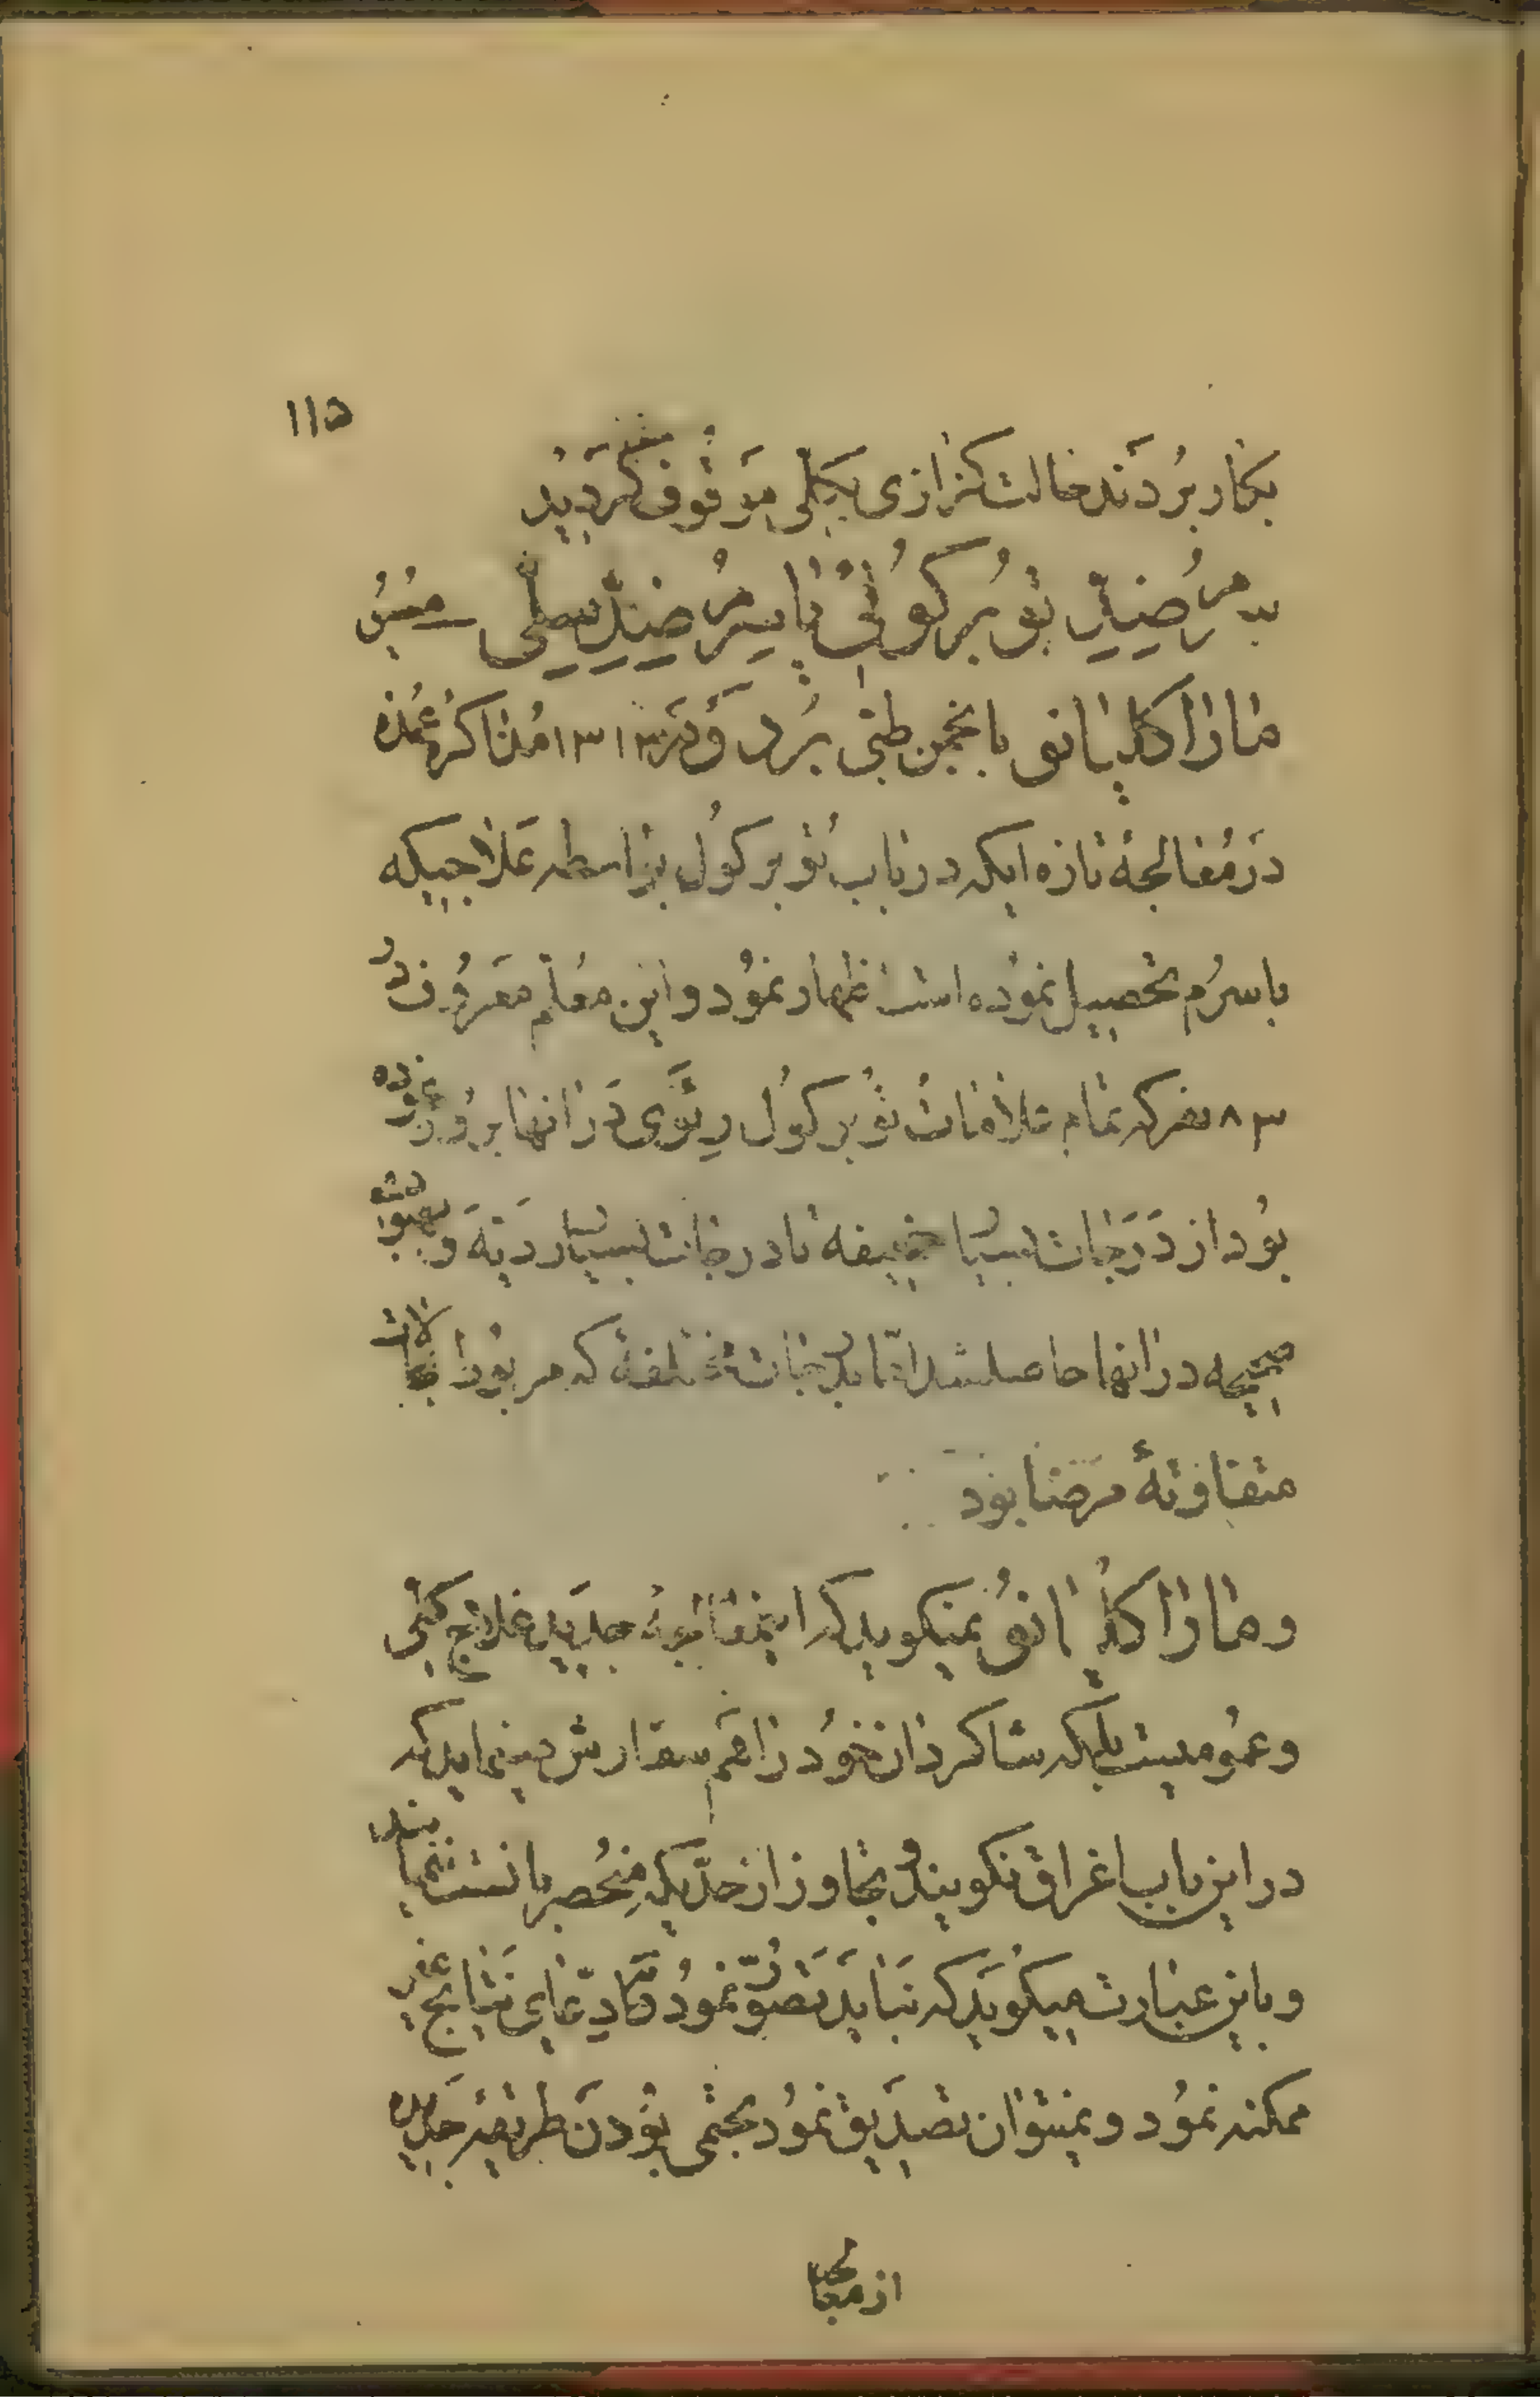 ۱۱۵
بکار بردند حالت کزازی بکلی موقوف گردید
سرم ضد توبرکولی یا سرم ضد سلی مسیو
ماراگلیانو بانجمن طبی برد و در ۱۳۱۳ مذاکره عمده
در معالجهٔ تازه ایکه در باب توبرکول بواسطه علاجیکه
باسرم تحصیل نموده است اظهار نمود و این معلم معروف در
۸۳ نفر که تمام علامات توبرکول ریوی در آنها بروز نموده
بود از درجات بسیار خفیفه تا درجات بسیار ردیه و بهبودی
صحیحه در آنها حاصل شد اما بدرجات مختلفهٔ که مربوط بحالات
متفاوتهٔ مرضا بود
و ماراگلیانو نمیگوید که این معالجهٔ جدید علاج کلی
و عمومیست بلکه شاگردان خود را هم سفارش مینماید که
در این باب اغراق نگویند و تجاوز از حدیکه منحصر بانست ننمایند
و باین عبارت میگوید که نباید تصور نمود و ادعای نتایج غیر
ممکنه نمود و نمیتوان تصدیق نمود بحتمی بودن طریقه جدیده
از معالجه